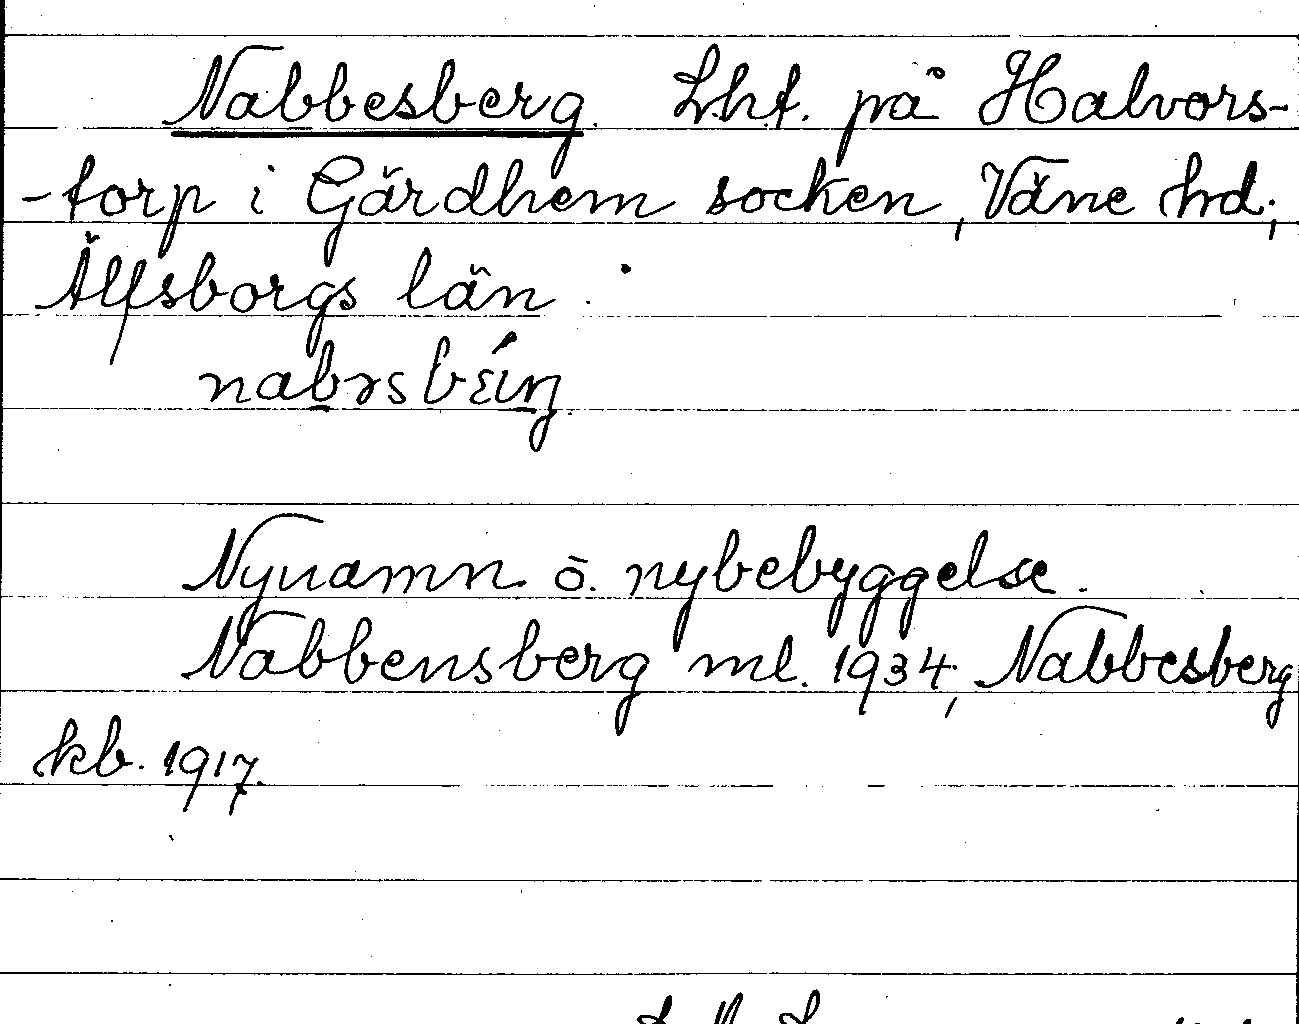 Nabbesberg. Lht. på Halvors-
-torp i Gärdhem socken, Väne hd,
Älfsborgs län.
Nynamn o. nybebyggelse.
Nabbensberg ml. 1934, Nabbesberg
kb. 1917.